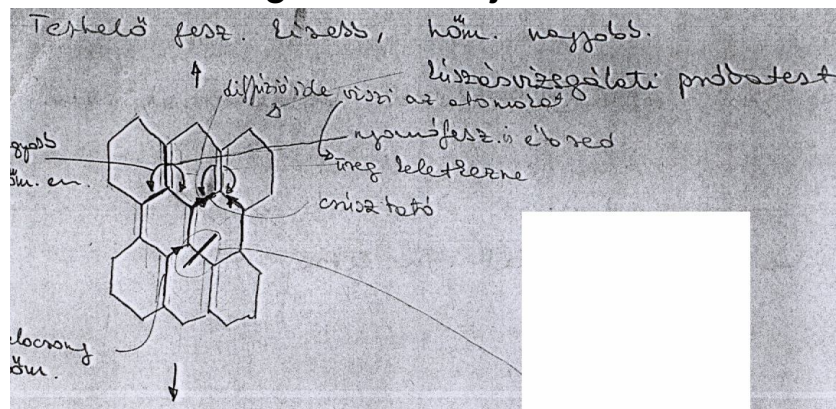 Terhelő fesz. kisebb, hőm. nagyobb.
kúszásvizsgálati próbatest
diffúzió ide viszi az atomokat
nyomófesz. is ébred
üreg keletkezne
csúsztató
gyobb
őm. en.
lacsony
őm.